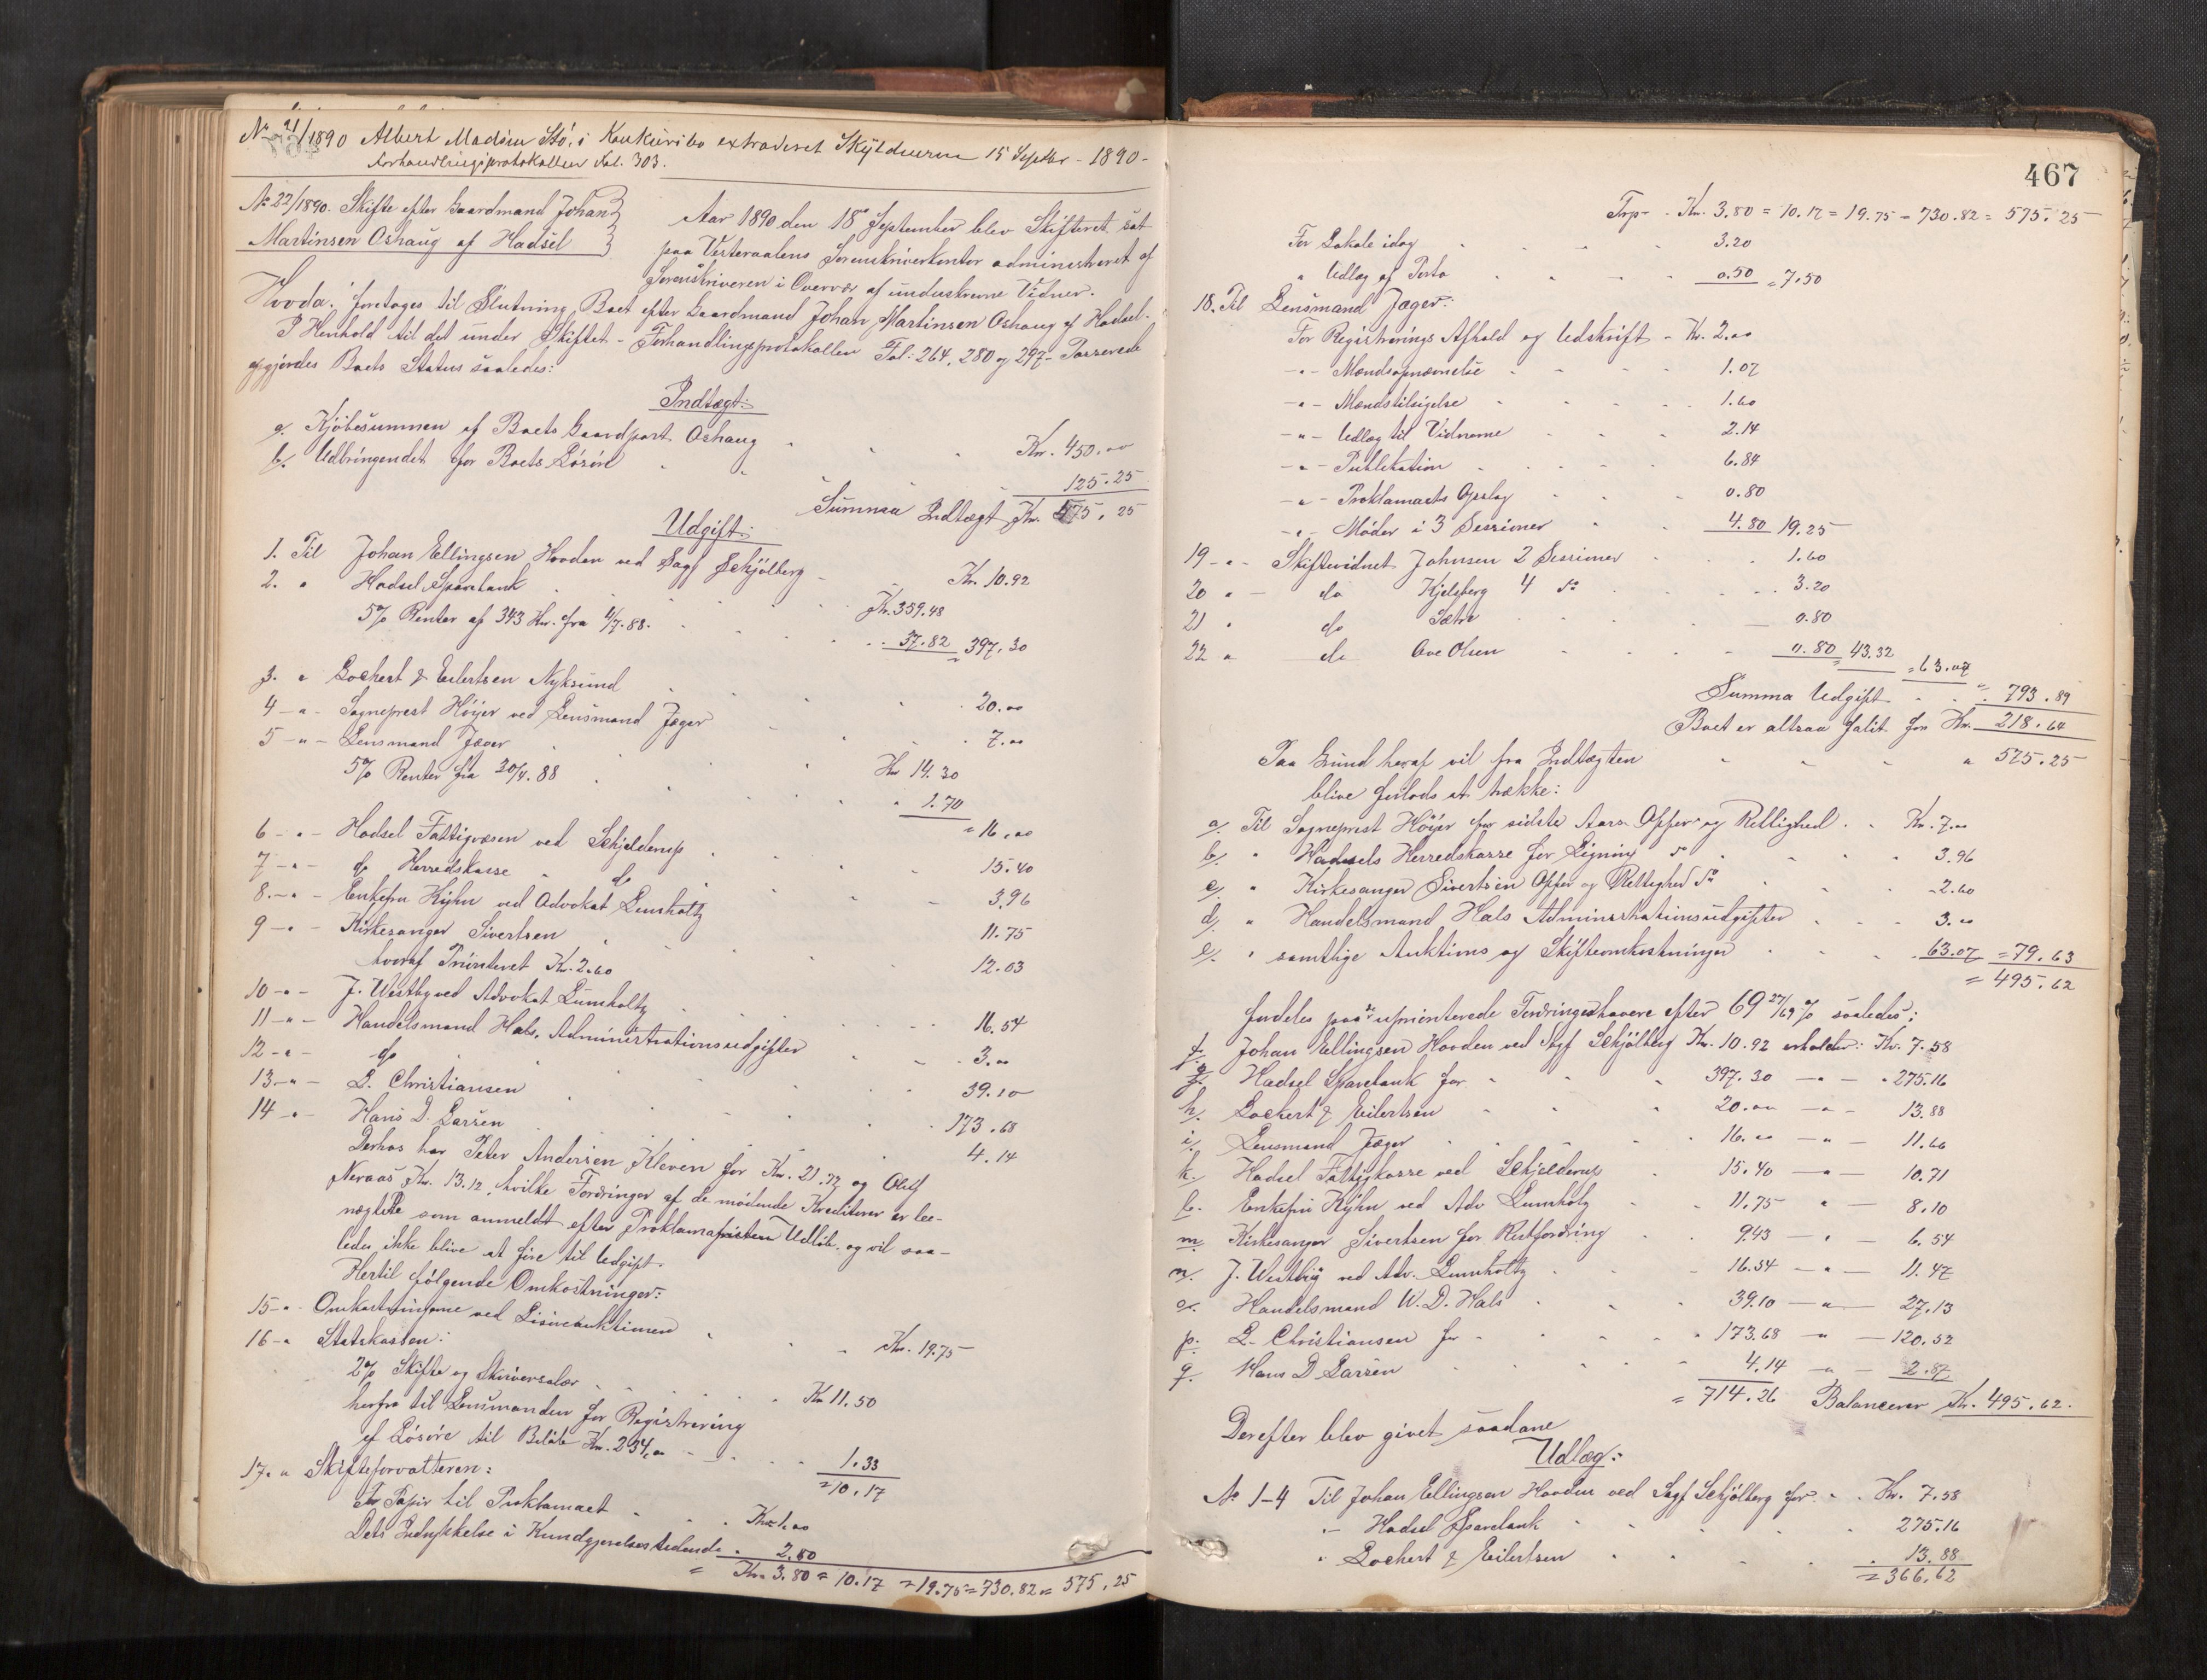 No 21/1890 Albert Madsen Stö, i Konkursbo extraderet Skyldneren 15 Septbr - 1890 -
Forhandlingsprotokollen Fol. 303.
No 22/1890. Skifte efter Gaardmand Johan
Martinsen Oshaug af Hadsel
Aar 1890 den 18de September blev Skifteret sat
paa Vesteraalens Sorenskriverkontor administreret af
Sorenskriveren i Overvær af underskrevne Vidner.
Hvorda: foretoges til Slutning Boet efter Gaardmand Johan Martinsen Oshaug af Hadsel.
I Henhold til det under Skiftet - Forhandlingsprotokollen Fol: 264, 280 og 297 - Passerede
opgjordes Boets Status saaledes:
Indtægt:
a. Kjöbesummen af Boets Gaardpart Oshaug Kr. 450.00
b. Udbringendet for Boets Lösöre 125.25
Summa Indtægt Kr. 575.25
Udgift:
1. Til Johan Ellingsen Hovden ved Sagf Schjölberg Kr. 10.92
2. " Hadsel Sparebank Kr. 359.48
5% Renter af 343 Kr. fra 4/7.88. 37.82 397.30
3. " Lockert & Eilertsen Nyksund 20.00
4 - " - Sogneprest Höyer ved Lensmand Jæger 7.00
5 - " - Lensmand Jæger Kr 14.30
5% Renter fra 30/4.88 " 1.70
= 16.00
6 - " - Hadsel Fattigvæsen ved Schjelderup 15.40
7 - " - do Herredskasse do 3.96
8. - " - Enkefru Kyhn ved Advokat Lumholtz 11.75
9 - " - Kirkesanger Sivertsen 12.03
hvoraf Prioriteret Kr. 2.60
10 - " - J. Westby ved Advokat Lumholtz 16.54
11 - " - Handelsmand Hals, Administrationsudgifter 3.00
12 - " - do 39.10
13 - " - L. Christiansen 173.68
14 - " - Hans D. Larsen 4.14
Derhos har Peter Andersen Kleven for Kr. 21.72 og Oluf
Neraas Kr. 13.12, hvilke Fordringer af de mödende Kreditorer er be-
nægtede som anmeldt efter Proklamafristens Udlöb og vil saa-
ledes ikke blive at före til Udgift.
Hertil fölgende Omkostninger:
15 - " Omkostningerne ved Lösöreauktionen Kr. 19.75
16 - " Statskassen:
2% Skifte og Skriversalær Kr 11.50
herfra til Lensmanden for Registrering
af Lösöre til Belöb Kr. 234.00 1.33
= 10.17
17. " Skifteforvalteren:
For Papir til Proklamaet Kr. 1.00
Dets Indrykkelse i Kundgjørelsestidende 2.80
= Kr. 3.80 = 10.17 = 19.75 = 730.82 = 575.25
467
Trsp. Kr. 3.80 = 10.17 = 19.75 = 730.82 = 575.25
For Lokale idag 3.20
" Udlæg af Porto 0.50 = 7.50
18. Til Lensmand Jæger:
For Registrerings Afhold og Udskrift - Kr. 2.00
- " - Mandsopnævnelse 1.07
- " - Mandstilsigelse 1.60
- " - Udlæg til Vidnerne 2.14
- " - Publikation 6.84
- " - Proklamaets Opslag 0.80
- " - Möder i 3 Sessioner 4.80 19.25
19 - " - Skiftevidnet Johnsen 2 Sessioner 1.60
20 " - do Kjelsberg 4 do 3.20
21 " do Sætre 0.80
22 " do Ove Olsen 0.80 43.32
= 63.07
Summa Udgift = 793.89
Boet er altsaa falit for Kr. 218.64
Paa Grund heraf vil fra Indtægten " 575.25
blive forlods at trække:
a. Til Sogneprest Höyer for sidste Aars Offer og Rettighed Kr. 7.00
b. " Hadsels Herredskasse for Ligning do 3.96
c. " Kirkesanger Sivertsen Offer og Rettighed do 2.60
d. " Handelsmand Hals Administrationsudgifter 3.00
e. " samtlige Auktions og Skifteomkostninger 63.07 = 79.63
= 495.62
fordeles paa de uprioriterede Fordringshavere efter 69 27/69 % saaledes:
f. Johan Ellingsen Hovden ved Sagf Schjölberg Kr. 10.92 erholder: Kr. 7.58
g. Hadsel Sparebank for 397.30 - " - 275.16
h. Lockert & Eilertsen 20.00 - " - 13.88
i. Lensmand Jæger 16.00 - " - 11.66
k. Hadsel Fattigkasse ved Schjelderup 15.40 - " - 10.71
l. Enkefru Kyhn ved Adv Lumholtz 11.75 " - 8.10
m. Kirkesanger Sivertsen for Restfordring 9.43 - " - 6.54
n. J. Westby ved Adv. Lumholtz 16.54 - " - 11.47
o. Handelsmand W. D. Hals 39.10 - " - 27.13
p. L. Christiansen for 173.68 - " - 120.52
q. Hans D Larsen 4.14 - " - 2.87
= 714.26 Balancerer Kr. 495.62.
Derefter blev givet saadane
Udlæg:
No 1-4 Til Johan Ellingsen Hovden ved Sagf Schjölberg for Kr. 7.58
" - Hadsel Sparebank 275.16
" Lockert & Eilertsen 13.88
= 366.62